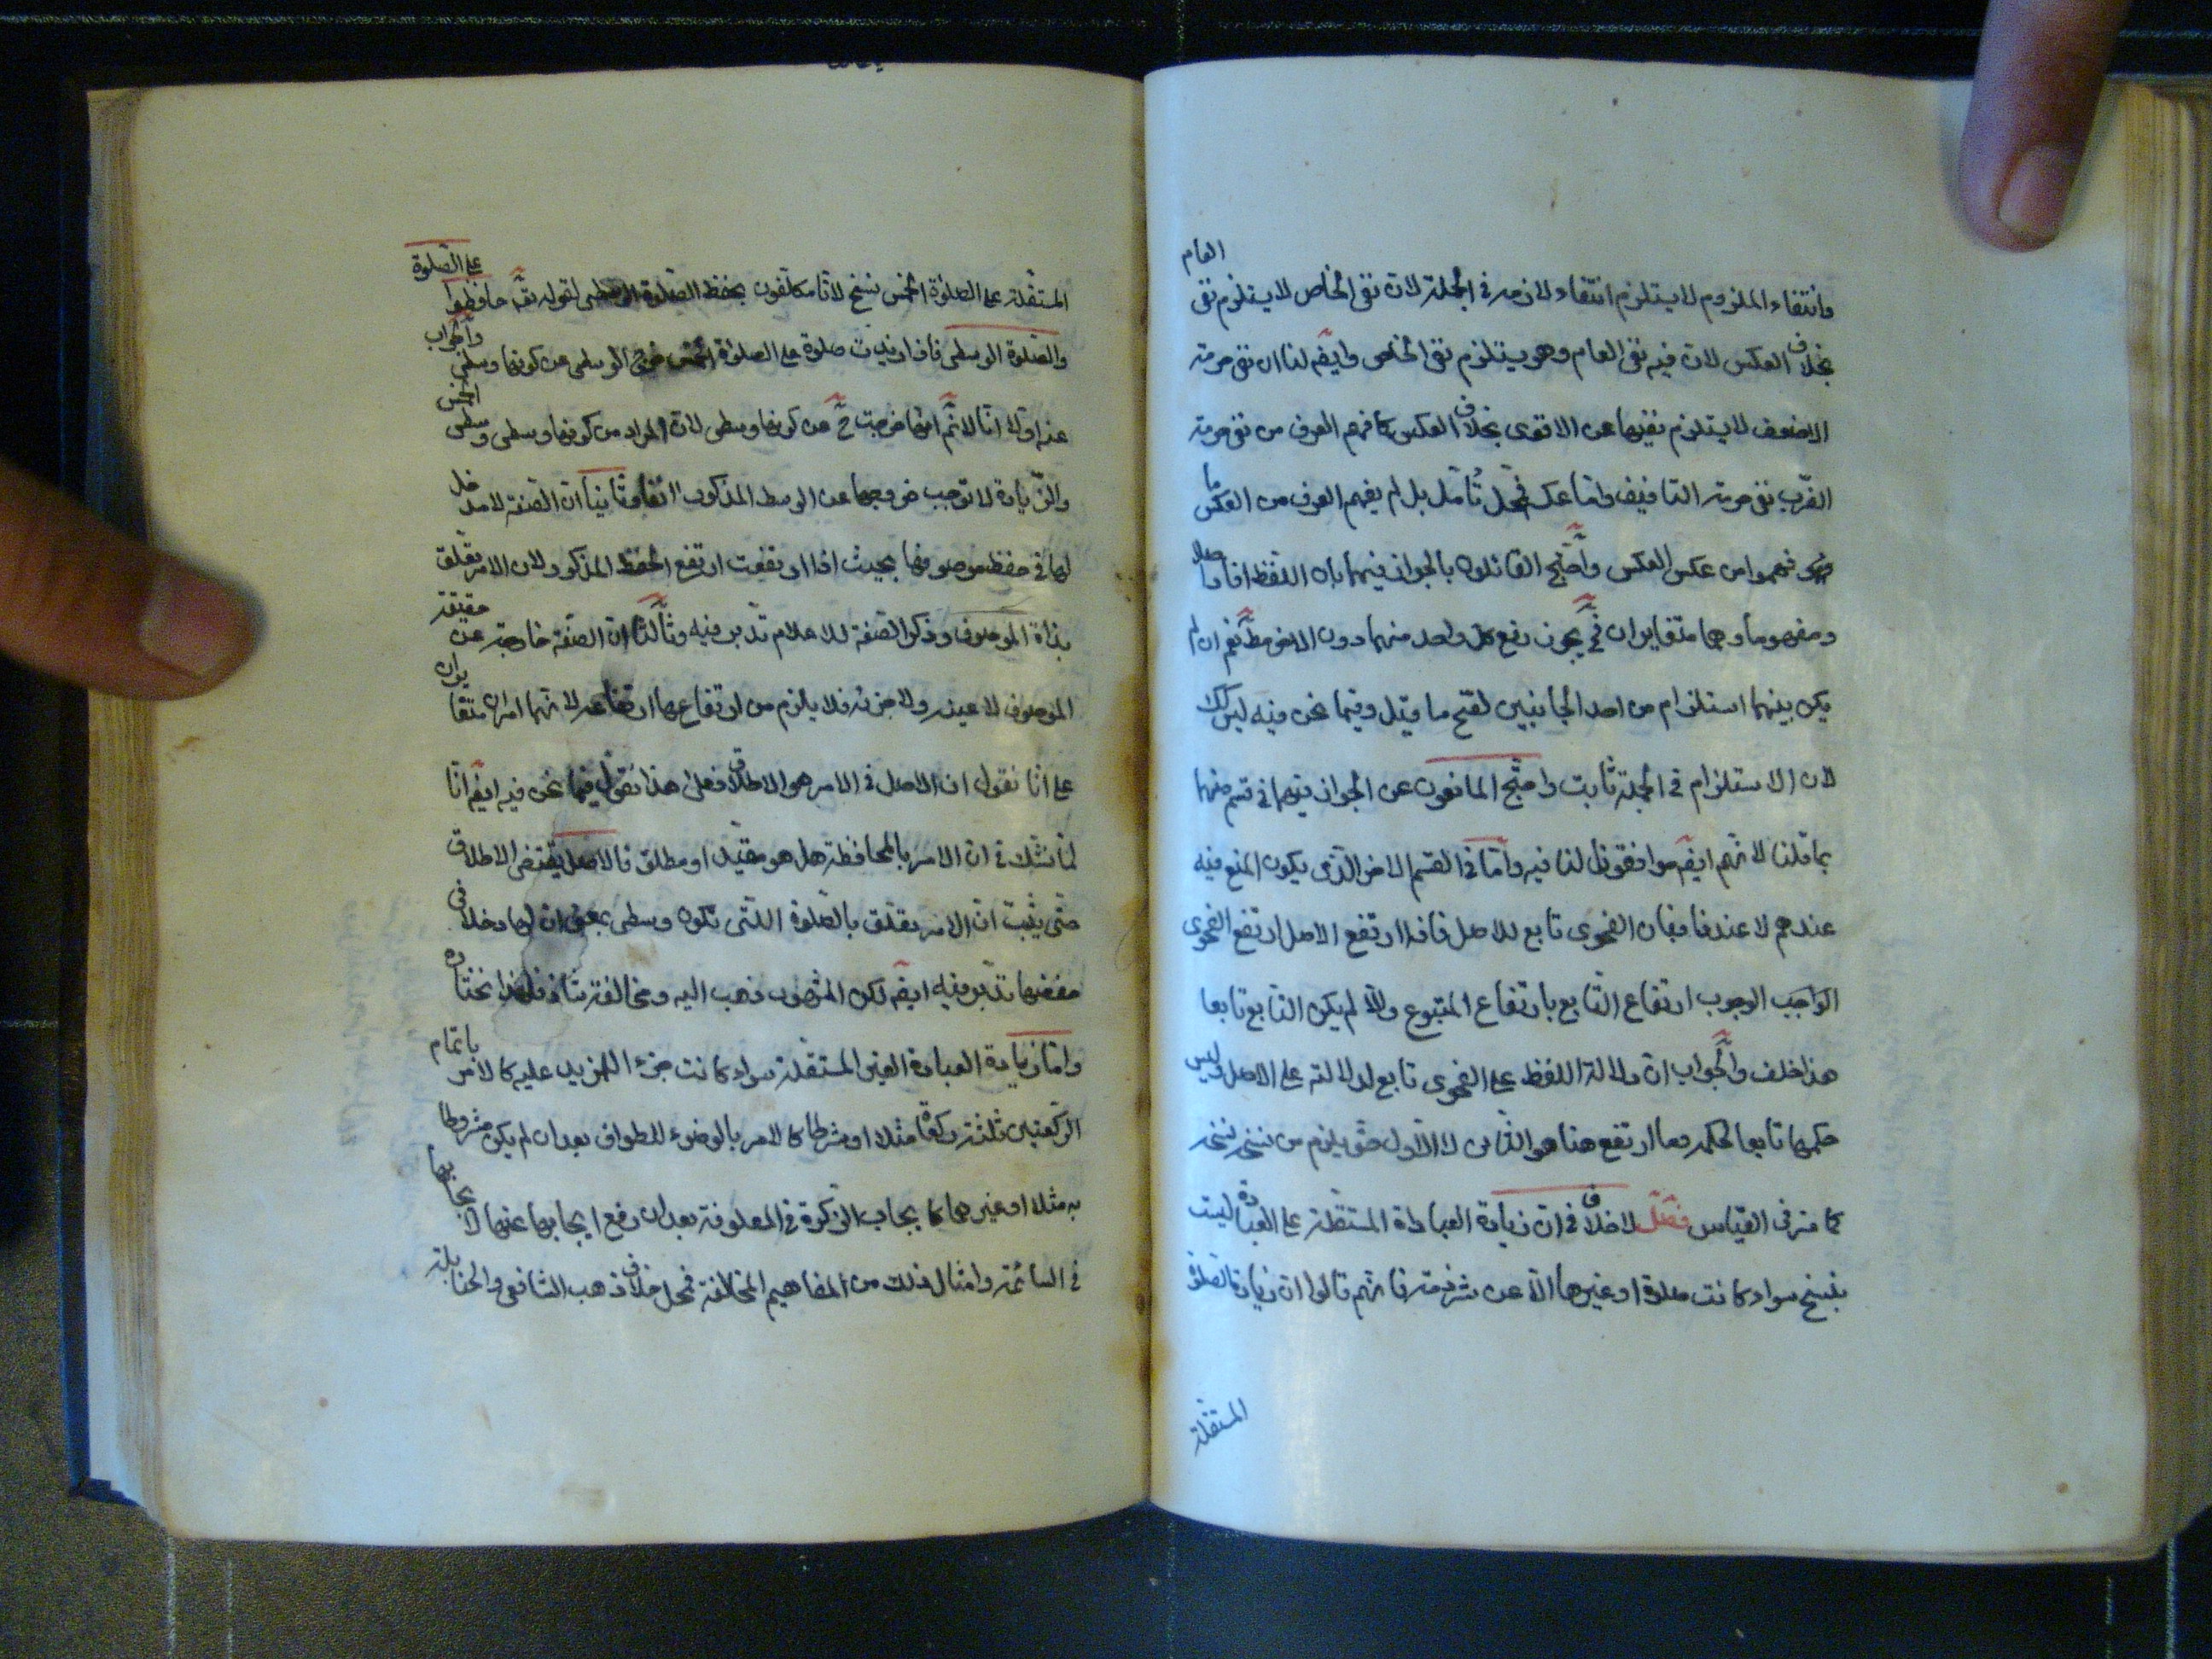 وانتفاء الملزوم لا يستلزم انتفاء لازمه في الجملة لان نفى الخاص لا يستلزم نفى العام
بخلاف العكس لان فيه نفى العام وهو يستلزم نفى الخاص وايضم لنا ان نفى حرمة
الاضعف لا يستلزم نفيها عن الاقوى بخلاف العكس كما فهم العرف من نفى حرمة
الضّرب نفى حرمة التافيف واما عكسه فمحل تأمل بل لم يفهم العرف من العكس ما
فهموا من عكس العكس واحتّج القائلون بالجواز فيهما بان اللفظ افاد اصلا
ومفهوما وهما متغايران فح يجوز رفع كل واحد منهما دون الاخر مط نعم ان لم
يكن بينهما استلزام من احد الجانبين لصّح ما قيل وفيما نحن فيه ليس كك
لان الاستلزام في الجملة ثابت واحتّج المانعون عن الجواز فيهما في قسم منهما
بما قلنا لانهم ايضم موافقون لنا فيه واما في القسم الاخر الّذى يكون المنع فيه
عندهم لا عندنا فبان الفحوى تابع للاصل فاذا ارتفع الاصل ارتفع الفحوى
الواجب الوجوب ارتفاع التّابع بارتفاع المتبوع والّا لم يكن التّابع تابعا
هذا خلف والجواب ان دلالة اللفظ على الفحوى تابع لدلالته على الاصل وليس
حكمها تابعا لحكمه وما ارتفع هنا هو الثّانى لا الاّول حتّى يلزم من نسخه نسخه
كما مر فى القياس فصل لا خلاف في ان زيادة العبادة المستقلة على العبادة ليست
بنسخ سواء كانت صلوة او غيرها الّا عن شرذمة فانّهم قالوا ان زيادة الصلوة
المستقلة
المستقلة على الصلوة الخمس نسخ لانّا مكلّفون بحفظ الصلوة الوسطى لقوله تعم حافظوا على الصّلوة
والصّلوة الوسطى فاذا زيدت صلوة على الصلوة الخمس خرج الوسطى عن كونها وسطى والجواب
عنه اولا انّا لا نّم انها خرجت ح عن كونها وسطى لان المراد من كونها وسطى وسطى الخمس
والزّيادة لا توجب خروجها عن الوسط المذكور اتفاقا وثانيا ان الصّفة لا مدخل
لها في حفظ موصوفها بحيث اذا ارتفعت ارتفع الحفظ المذكور لان الامر تعلّق
بذاة الموصوف وذكر الصّفة للاعلام تدّبر فيه وثالثا ان الصّفة خارجة عن حقيقة
الموصوف لا عينه ولا جزئه فلا يلزم من ارتفاعها ارتفاعه لانهما امران متغايران
على انّا نقول ان الاصل في الامر هو الاطلاق فعلى هذا نقول فيما نحن فيه ايضم انّا
لما نشّك في ان الامر بالمحافظة هل هو مقيّد او مطلق فالاصل يقتضى الاطلاق
حتّى يثبت ان الامر يتعلق بالصّلوة اللتى تكون وسطى بمعنى ان لها دخلا في
حفظها تدّبر فيه ايضم لكن المشهور ذهب اليه ومخالفته شاذ فلهذا نختاره
واما زيادة العبادة الغير المستقلة سواء كانت جزء المزيد عليه كالامر باتمام
الرّكعتين ثلثة ركعة مثلا او شرطا كالامر بالوضوء للطواف بعد ان لم يكن مشروطا
به مثلا او غيرهما كايجاب الزكوة في المعلوفة بعد ان رفع ايجابها عنها لايجابها
في السائمة وامثال ذلك من المفاهيم المخالفة فمحل خلاف ذهب الشافعى والحنابلة